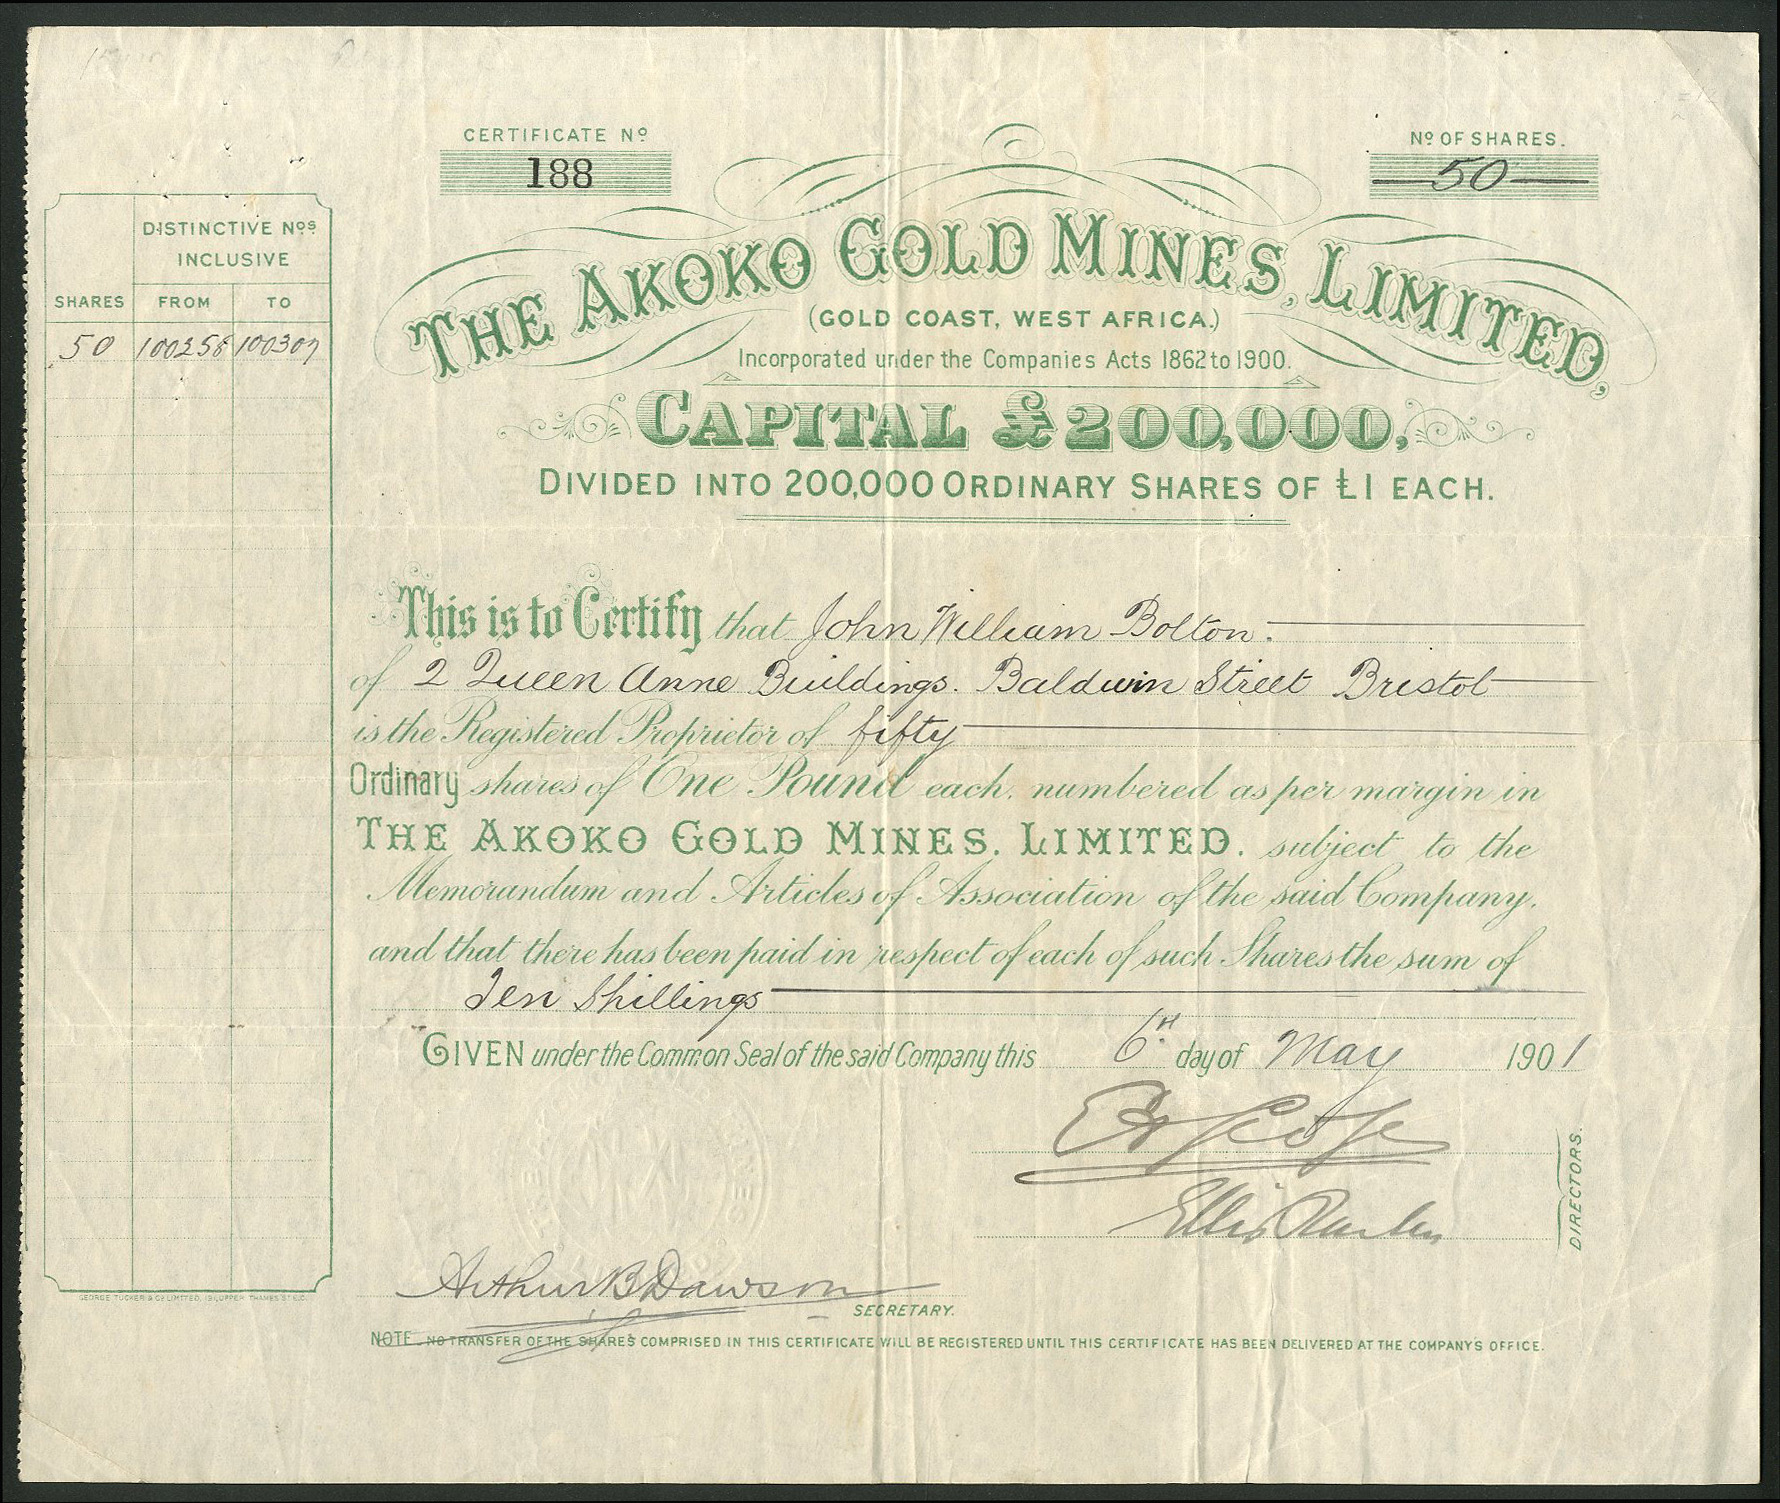 CERTIFICATE Nº
188
Nº OF SHARES.
50
THE AKOKO GOLD MINES, LIMITED,
(GOLD COAST, WEST AFRICA.)
Incorporated under the Companies Acts 1862 to 1900.
CAPITAL £200,000,
DIVIDED INTO 200,000 ORDINARY SHARES OF £1 EACH.
DISTINCTIVE Nºs
INCLUSIVE
SHARES FROM TO
50 100258 100307
This is to Certify that John William Bolton.
of 2 Queen Anne Buildings. Baldwin Street Bristol
is the Registered Proprietor of fifty
Ordinary shares of One Pound each, numbered as per margin in
THE AKOKO GOLD MINES, LIMITED, subject to the
Memorandum and Articles of Association of the said Company,
and that there has been paid in respect of each of such Shares the sum of
Ten Shillings
GIVEN under the Common Seal of the said Company this 6TH day of May 1901
DIRECTORS.
Arthur B Dawson
SECRETARY.
GEORGE TUCKER & Cº LIMITED, UPPER THAMES ST E.C.
NOTE. NO TRANSFER OF THE SHARES COMPRISED IN THIS CERTIFICATE WILL BE REGISTERED UNTIL THIS CERTIFICATE HAS BEEN DELIVERED AT THE COMPANY'S OFFICE.